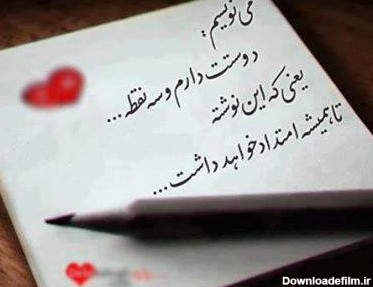 می نویسم :
دوستت دارم و سه نقطه ...
یعنی که این نوشته
تا همیشه امتداد خواهد داشت ...
Downloadefilm.ir